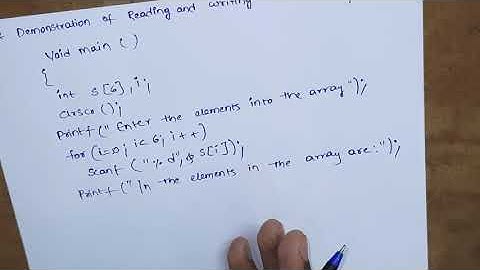 Demonstration of Reading and writing
Void main ( )
{
int s[6], i;
clrscr ();
Printf (" Enter the elements into the array");
for (i=0; i< 6; i++)
scanf ("%d", & s[i]);
Printf (" \n the elements in the array are:");